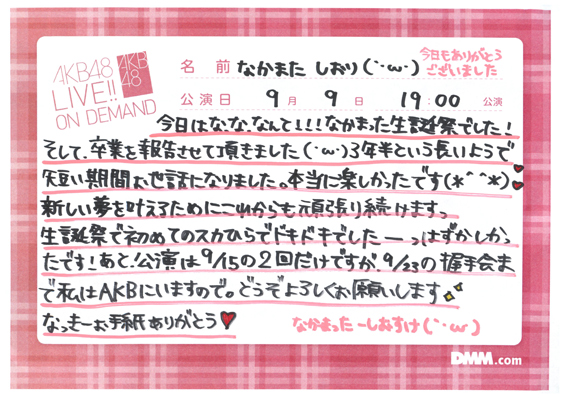 AKB48
LIVE!!
ON DEMAND
AKB
48
名前 なかまた しおり(˙·ω·)
今日もありがとう
ございました
公演日 9月9日 19:00 公演
今日はな、な、なんと!!!なかまった生誕祭でした!
そして、卒業を報告させて頂きました(·ω·)3年半という長いようで
短い期間お世話になりました。本当に楽しかったです(*^^*)
新しい夢を叶えるためにこれからも頑張り続けますっ
生誕祭で初めてのスカひらでドキドキでしたーっはずかしかっ
たです!あと、公演は9/15の2回だけですが、9/23の握手会ま
で私はAKBにいますので。どうぞよろしくお願いします
なっきーお手紙ありがとう♥
なかまったーしおすけ(˙·ω·)
DMM.com